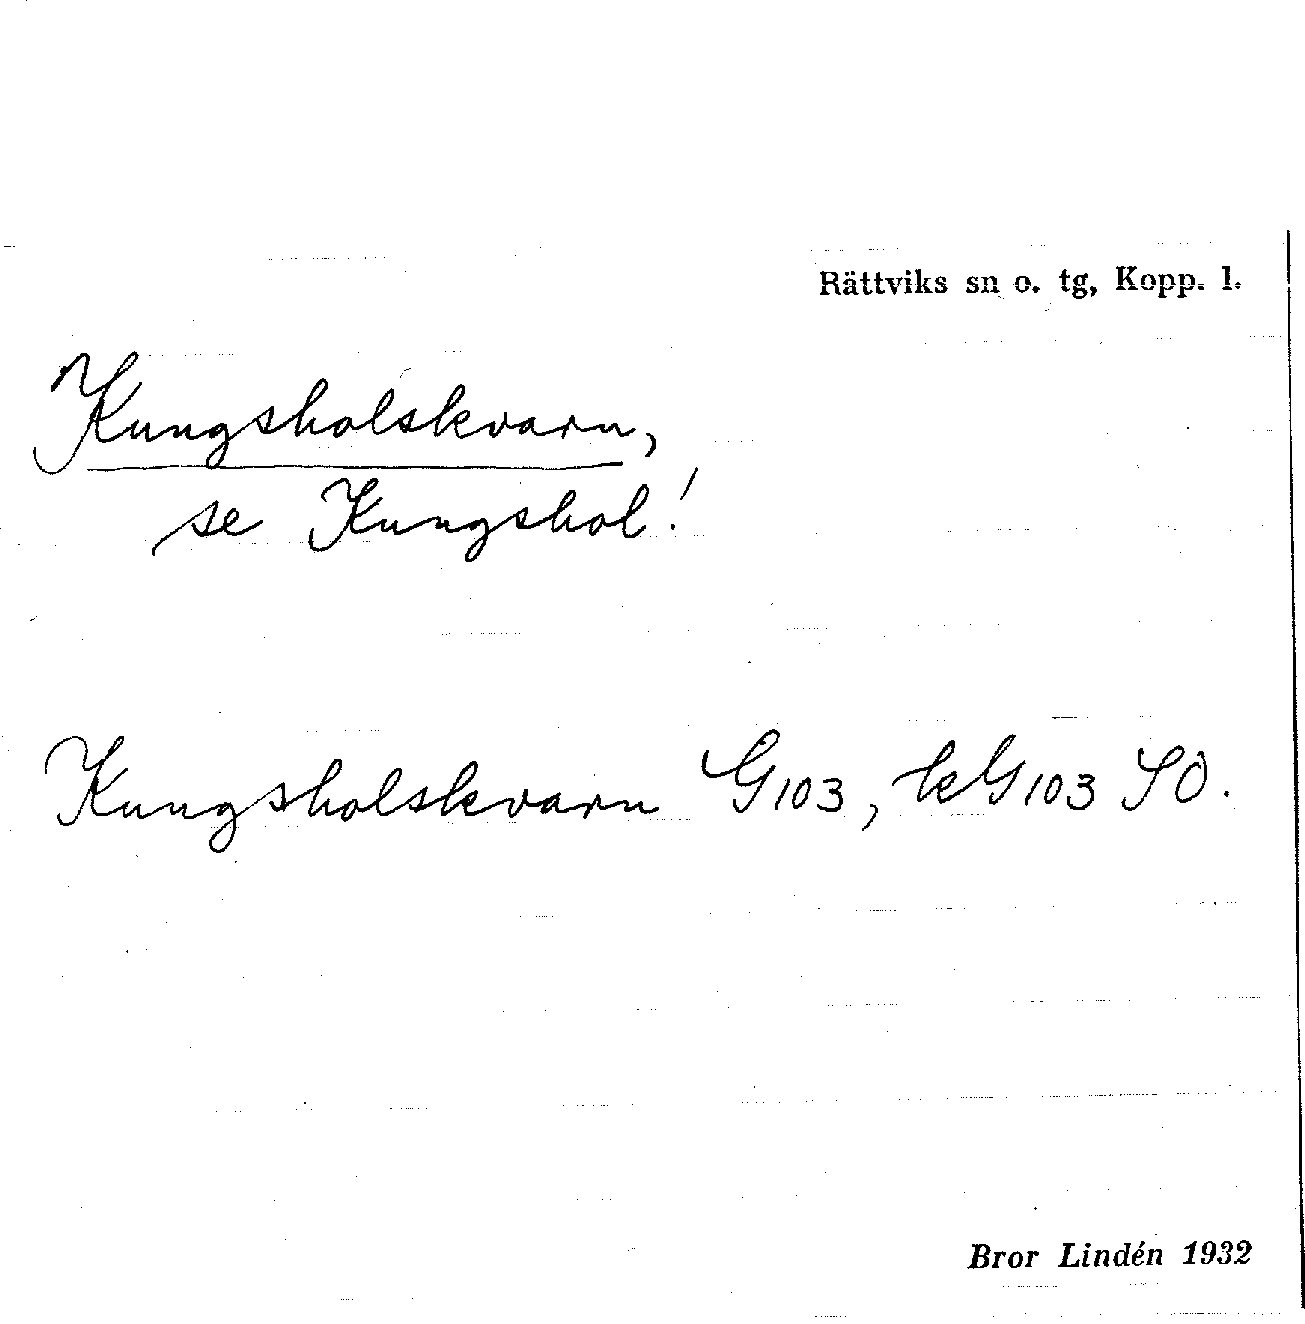 Rättviks sn o. tg, Kopp. l.
Kungsholskvarn,
se Kungshol!
Kungsholskvarn G103, kG103 SO.
Bror Lindén 1932